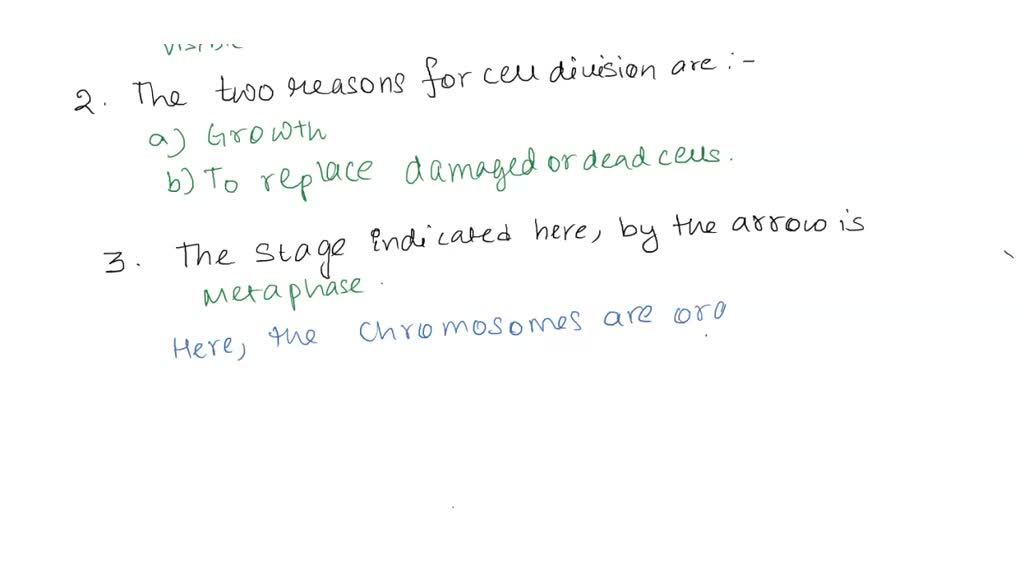 2. The two reasons for cell division are :-
a) Growth
b) To replace damaged or dead cells.
3. The stage indicated here, by the arrow is
metaphase.
Here, the chromosomes are